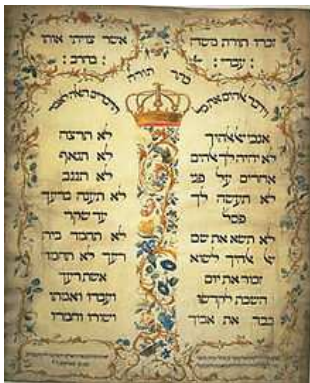 זכרו תורת משה
עבדי:
אשר צויתי אותו
: בחרב :
כתר תורה
וידבר אלהים את כל
הדברים האלה לאמר
אנכי יי אלהיך
לא יהיה לך אלהים
אחרים על פני
לא תעשה לך
פסל
לא תשא את שם
יי אלהיך לשוא
זכור את יום
השבת לקדשו
כבד את אביך
לא תרצח
לא תנאף
לא תגנב
לא תענה ברעך
עד שקר
לא תחמד בית
רעך לא תחמד
אשת רעך
ועבדו ואמתו
ושורו וחמרו